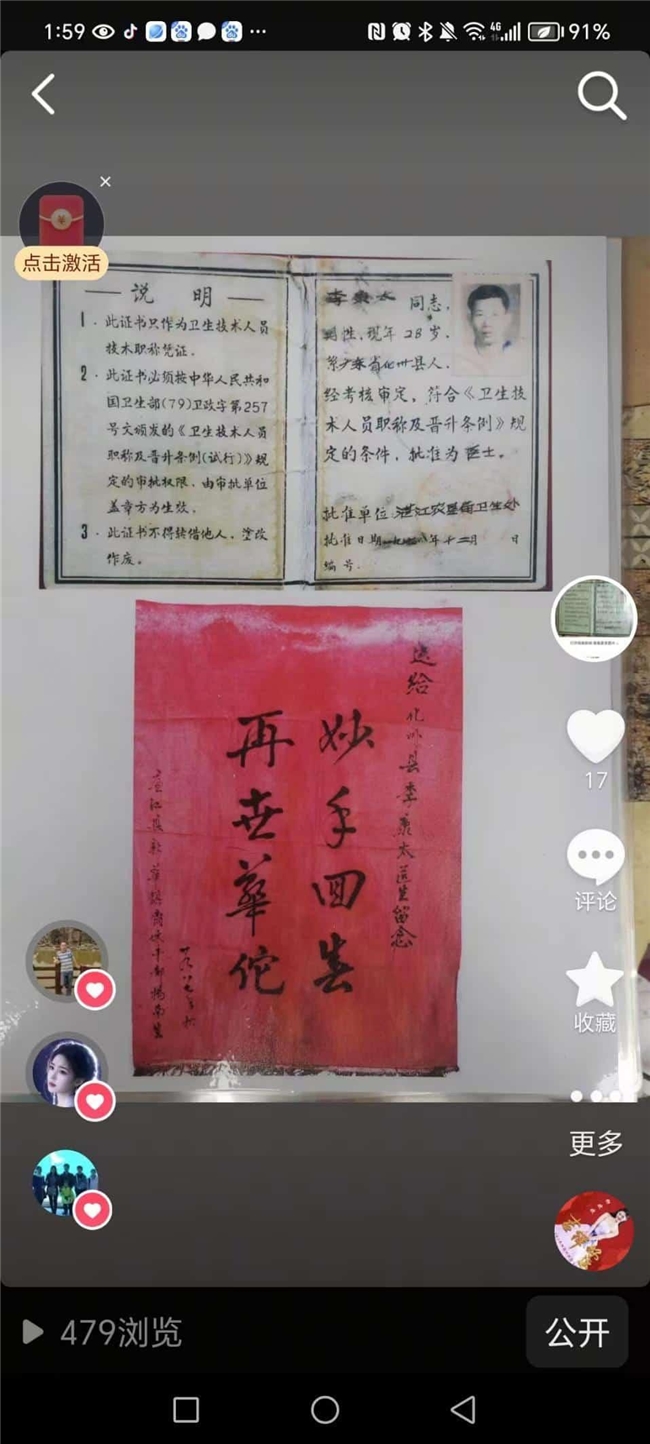 1:59
4G
91%
点击激活
说 明
1. 此证书只作为卫生技术人员
技术职称凭证.
2. 此证书必须按中华人民共和
国卫生部(79)卫政字第257
号文颁发的《卫生技术人员
职称及晋升条例(试行)》规
定的审批权限. 由审批单位
盖章方为生效.
3. 此证书不得转借他人. 塗改
作废.
李康太 同志.
男性, 现年 28 岁.
系广东省化州县人.
经考核审定, 符合《卫生技
术人员职称及晋升条例》规
定的条件, 批准为 医士.
批准单位 湛江农垦局卫生处
批准日期 年十二月 日
编号.
送给化州县李康太医生留念
妙手回春
再世華佗
17
评论
收藏
更多
479浏览
公开